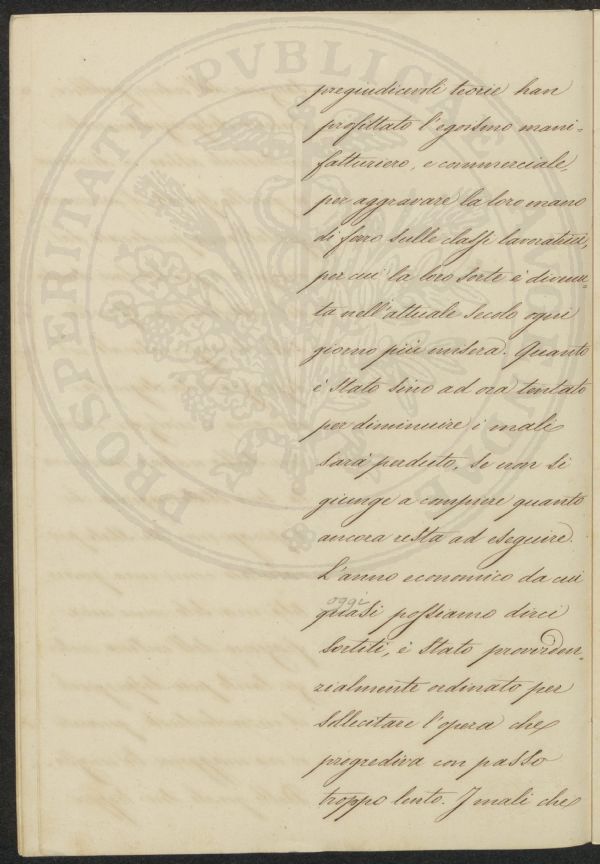 pregiudicevoli teorie han
profittato l'egoismo mani=
fatturiero, e commerciale,
per aggravare la loro mano
di ferro sulle classi lavoratrici,
per cui la loro sorte è divenu-
ta nell'attuale secolo ogni
giorno più misera. Quanto
è stato sino ad ora tentato
per diminuire i mali
sarà perduto, se non si
giunge a compiere quanto
ancora resta ad eseguire.
L'anno economico da cui
oggi
quasi possiamo dirci
sortiti, è stato providen-
zialmente ordinato per
sollecitare l'opera che
progrediva con passo
troppo lento. I mali che
PROSPERITATI PVBLICAE